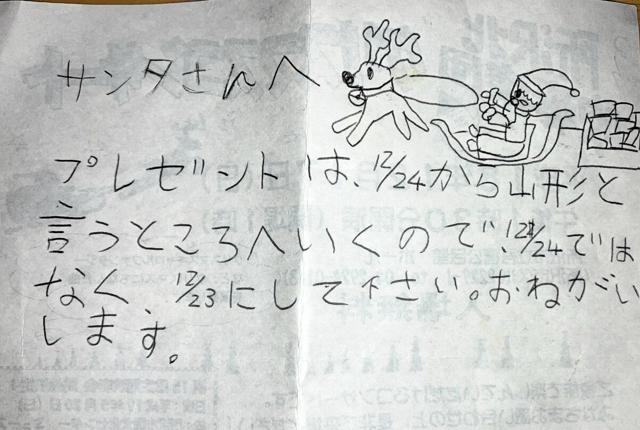 サンタさんへ
プレゼントは、12/24から山形と
言うところへいくので、12/24では
なく、12/23にして下さい。おねがい
します。